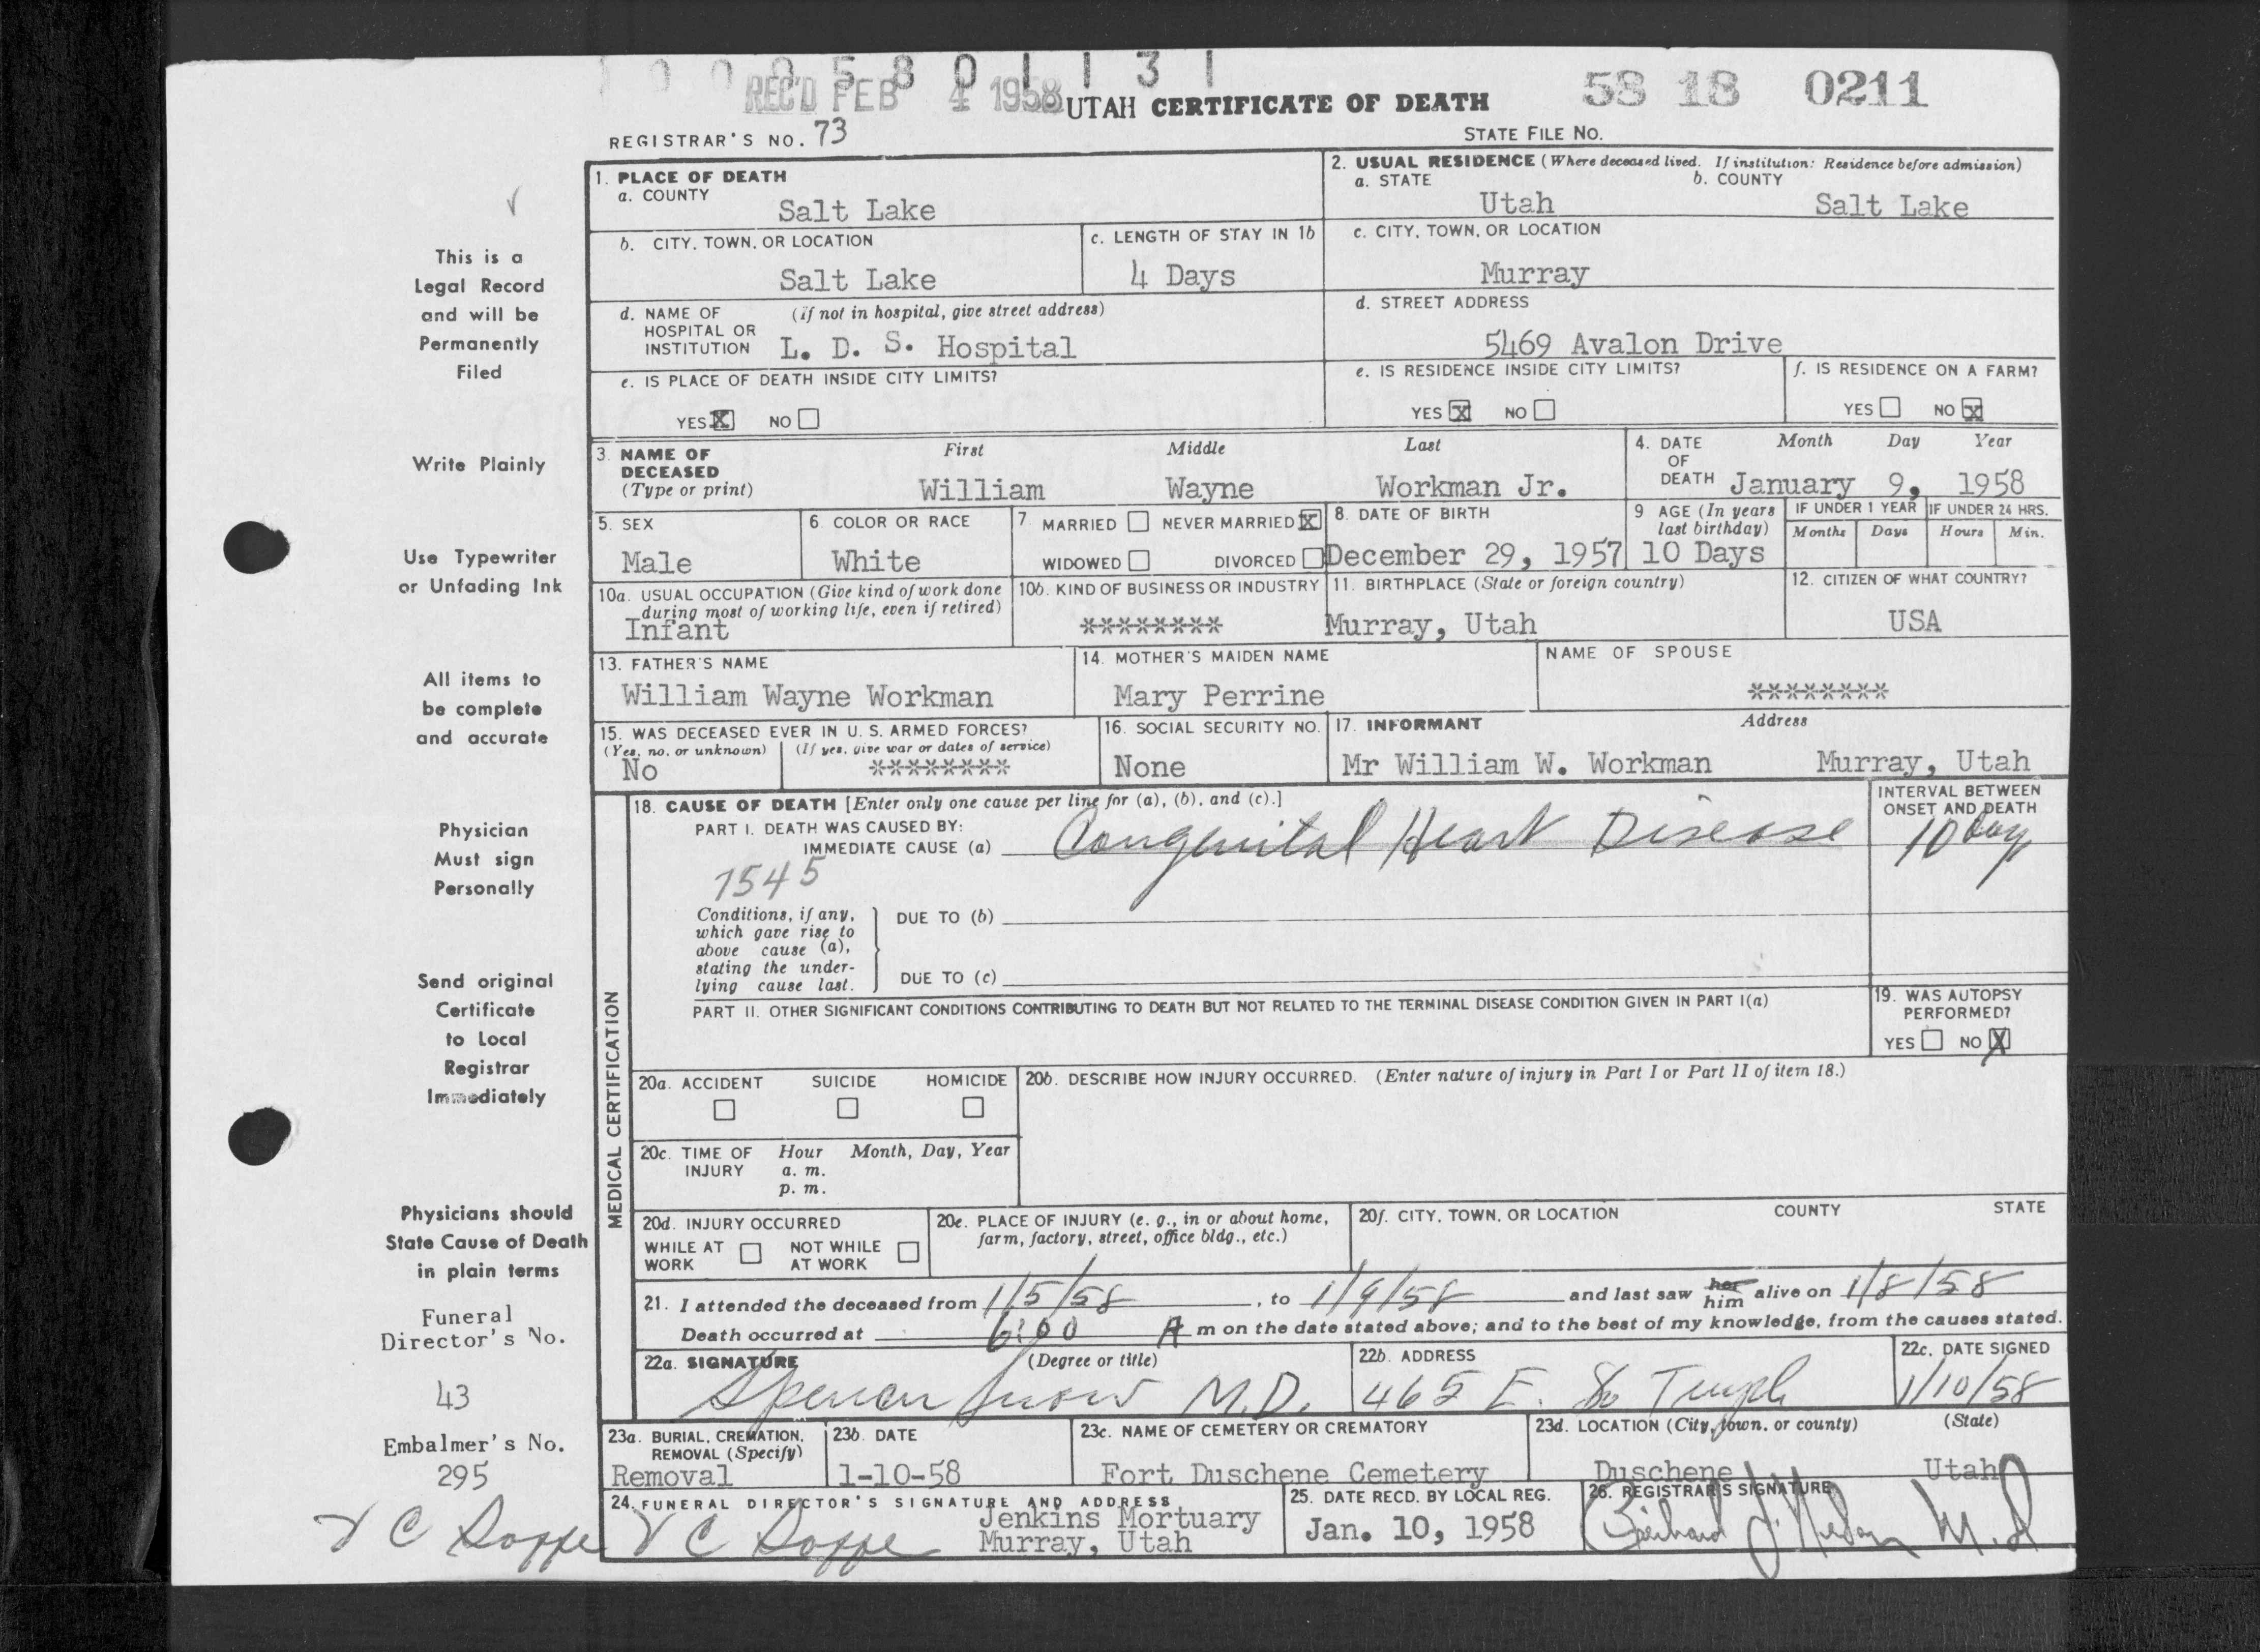 1 0 0 0 5 8 0 1 1 3 1
REC'D FEB 4 1958
UTAH CERTIFICATE OF DEATH
58 18 0211
REGISTRAR'S NO. 73
STATE FILE NO.
1. PLACE OF DEATH
a. COUNTY
Salt Lake
2. USUAL RESIDENCE (Where deceased lived. If institution: Residence before admission)
a. STATE b. COUNTY
Utah Salt Lake
b. CITY, TOWN, OR LOCATION
Salt Lake
c. LENGTH OF STAY IN 1b
4 Days
c. CITY, TOWN, OR LOCATION
Murray
d. NAME OF (If not in hospital, give street address)
HOSPITAL OR
INSTITUTION L. D. S. Hospital
d. STREET ADDRESS
5469 Avalon Drive
e. IS PLACE OF DEATH INSIDE CITY LIMITS?
YES X NO
e. IS RESIDENCE INSIDE CITY LIMITS?
YES X NO
f. IS RESIDENCE ON A FARM?
YES NO X
3. NAME OF
DECEASED
(Type or print)
First Middle Last
William Wayne Workman Jr.
4. DATE Month Day Year
OF
DEATH January 9, 1958
5. SEX
Male
6. COLOR OR RACE
White
7 MARRIED NEVER MARRIED X
WIDOWED DIVORCED
8. DATE OF BIRTH
December 29, 1957
9 AGE (In years
last birthday)
10 Days
IF UNDER 1 YEAR
Months Days
IF UNDER 24 HRS.
Hours Min.
10a. USUAL OCCUPATION (Give kind of work done
during most of working life, even if retired)
Infant
10b. KIND OF BUSINESS OR INDUSTRY
********
11. BIRTHPLACE (State or foreign country)
Murray, Utah
12. CITIZEN OF WHAT COUNTRY?
USA
13. FATHER'S NAME
William Wayne Workman
14. MOTHER'S MAIDEN NAME
Mary Perrine
NAME OF SPOUSE
********
15. WAS DECEASED EVER IN U. S. ARMED FORCES?
(Yes, no, or unknown) (If yes, give war or dates of service)
No ********
16. SOCIAL SECURITY NO.
None
17. INFORMANT Address
Mr William W. Workman Murray, Utah
MEDICAL CERTIFICATION
18. CAUSE OF DEATH [Enter only one cause per line for (a), (b), and (c).]
PART I. DEATH WAS CAUSED BY:
IMMEDIATE CAUSE (a) Congenital Heart Disease
INTERVAL BETWEEN
ONSET AND DEATH
10 days
7545
Conditions, if any,
which gave rise to
above cause (a),
stating the under-
lying cause last.
DUE TO (b)
DUE TO (c)
PART II. OTHER SIGNIFICANT CONDITIONS CONTRIBUTING TO DEATH BUT NOT RELATED TO THE TERMINAL DISEASE CONDITION GIVEN IN PART I(a)
19. WAS AUTOPSY
PERFORMED?
YES NO X
20a. ACCIDENT SUICIDE HOMICIDE
20b. DESCRIBE HOW INJURY OCCURRED. (Enter nature of injury in Part I or Part II of item 18.)
20c. TIME OF Hour Month, Day, Year
INJURY a. m.
p. m.
20d. INJURY OCCURRED
WHILE AT NOT WHILE
WORK AT WORK
20e. PLACE OF INJURY (e. g., in or about home,
farm, factory, street, office bldg., etc.)
20f. CITY, TOWN, OR LOCATION COUNTY STATE
21. I attended the deceased from 1/5/58, to 1/9/58 and last saw her him alive on 1/8/58
Death occurred at 6:00 A m on the date stated above; and to the best of my knowledge, from the causes stated.
22a. SIGNATURE (Degree or title)
Spencer Snow M.D.
22b. ADDRESS
465 E. So Temple
22c. DATE SIGNED
1/10/58
23a. BURIAL, CREMATION,
REMOVAL (Specify)
Removal
23b. DATE
1-10-58
23c. NAME OF CEMETERY OR CREMATORY
Fort Duschene Cemetery
23d. LOCATION (City, town, or county) (State)
Duschene Utah
24. FUNERAL DIRECTOR'S SIGNATURE AND ADDRESS
Jenkins Mortuary
Murray, Utah
25. DATE RECD. BY LOCAL REG.
Jan. 10, 1958
26. REGISTRAR'S SIGNATURE
M.D
This is a
Legal Record
and will be
Permanently
Filed
Write Plainly
Use Typewriter
or Unfading Ink
All items to
be complete
and accurate
Physician
Must sign
Personally
Send original
Certificate
to Local
Registrar
Immediately
Physicians should
State Cause of Death
in plain terms
Funeral
Director's No.
43
Embalmer's No.
295